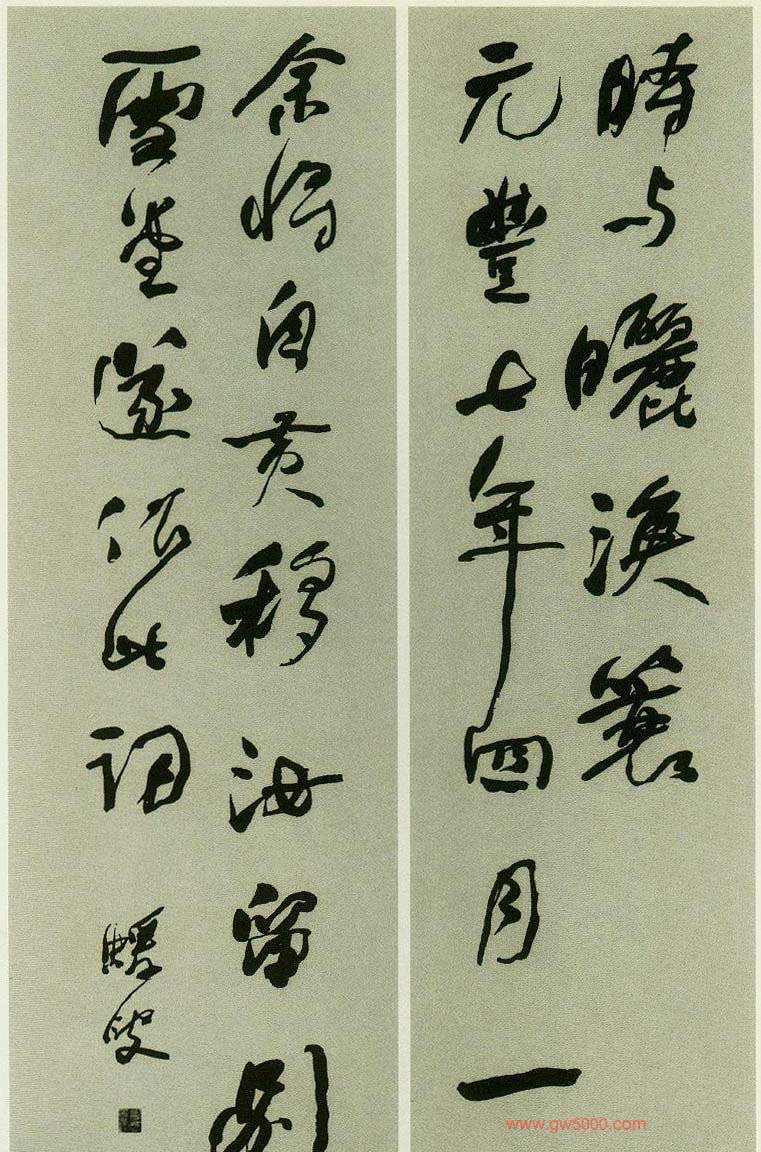 時与曬漁簑
元豐七年四月一
余将自黄移汝留别
雪堂遂作此詞
蝯叟
www.gw5000.com